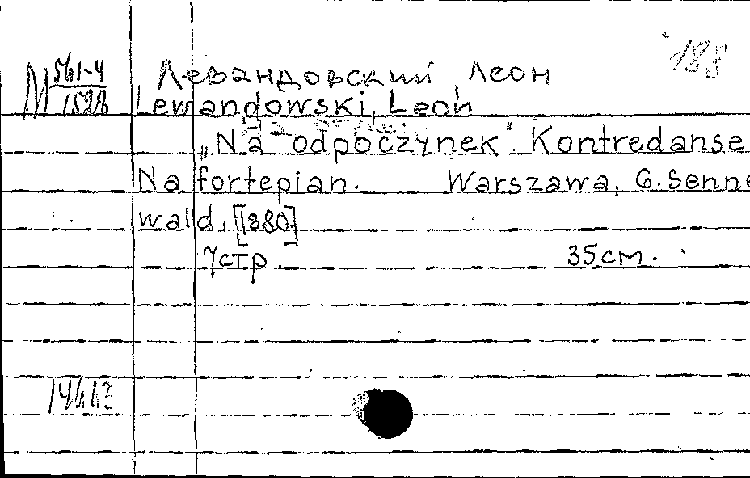 188
М 561-4 Левандовский Леон
Lewandowski, Leon
„Na odpoczynek". Kontredanse
Na fortepian. Warszawa, G. Senne
wald, [1880]
7стр. 35 см.